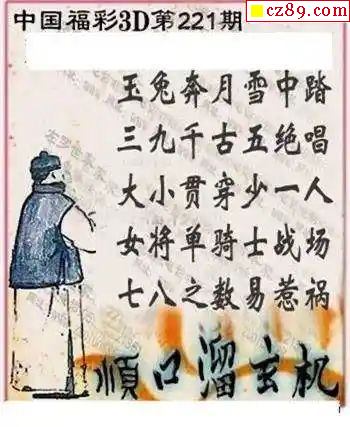 cz89.com
中国福彩3D第221期
玉兔奔月雪中踏
三九千古五绝唱
大小贯穿少一人
女将单骑士战场
七八之数易惹祸
顺口溜玄机